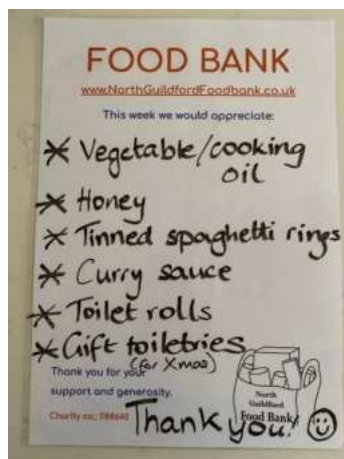 FOOD BANK
www.NorthGuildfordFoodbank.co.uk
This week we would appreciate:
* Vegetable/cooking
oil
* Honey
* Tinned spaghetti rings
* Curry sauce
* Toilet rolls
* Gift toiletries
(for Xmas)
Thank you for your
support and generosity.
Charity no.: 1188640
North
Guildford
Food Bank
Thank you!